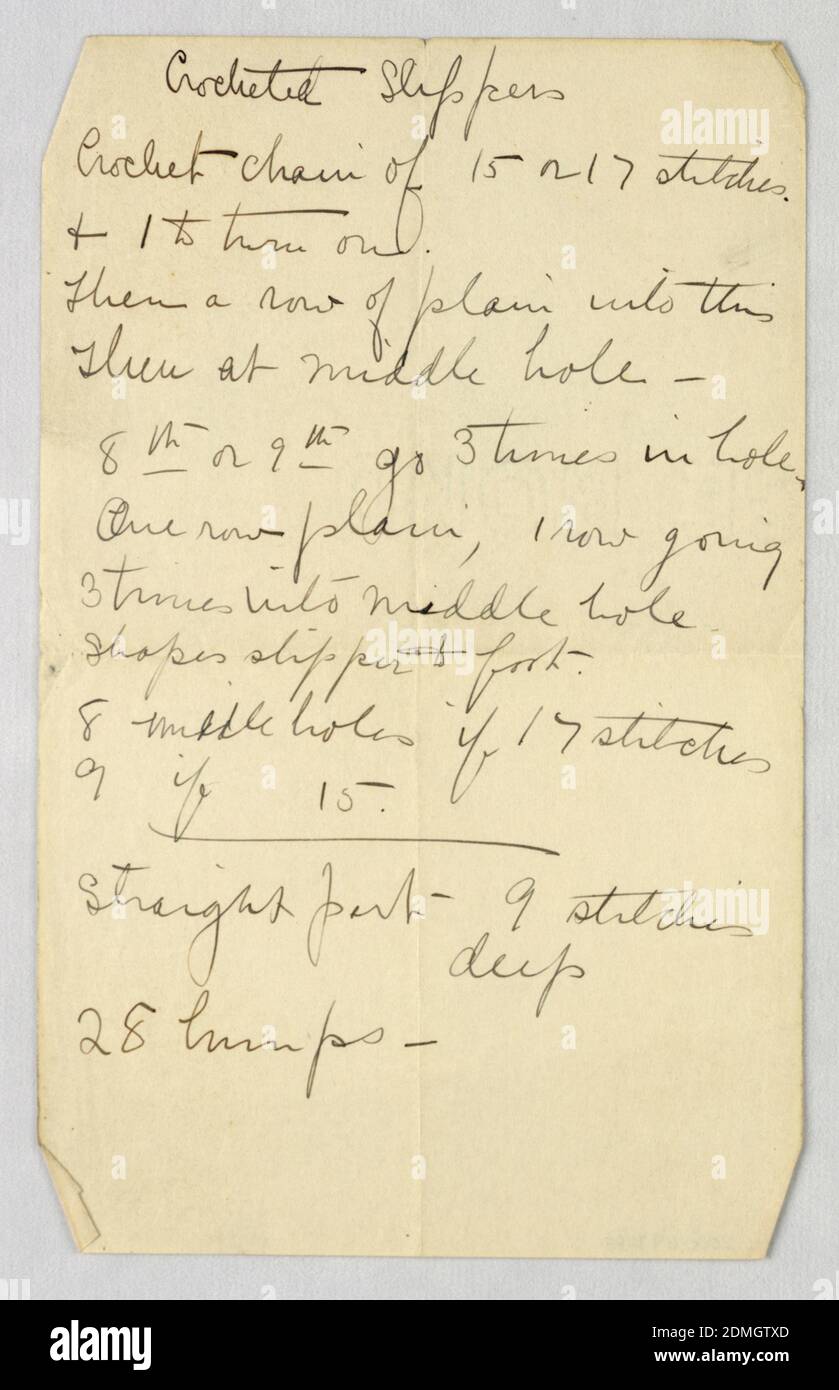 Crocheted Slippers
Crochet chain of 15 or 17 stitches.
+ 1 to turn on.
Then a row of plain into this
Then at middle hole —
8th or 9th go 3 times in hole.
One row plain, 1 row going
3 times into middle hole.
Shapes slipper to foot.
8 middle holes if 17 stitches
9 if 15.
Straight part 9 stitches
deep
28 humps —
alamy
Image ID: 2DMGTXD
www.alamy.com